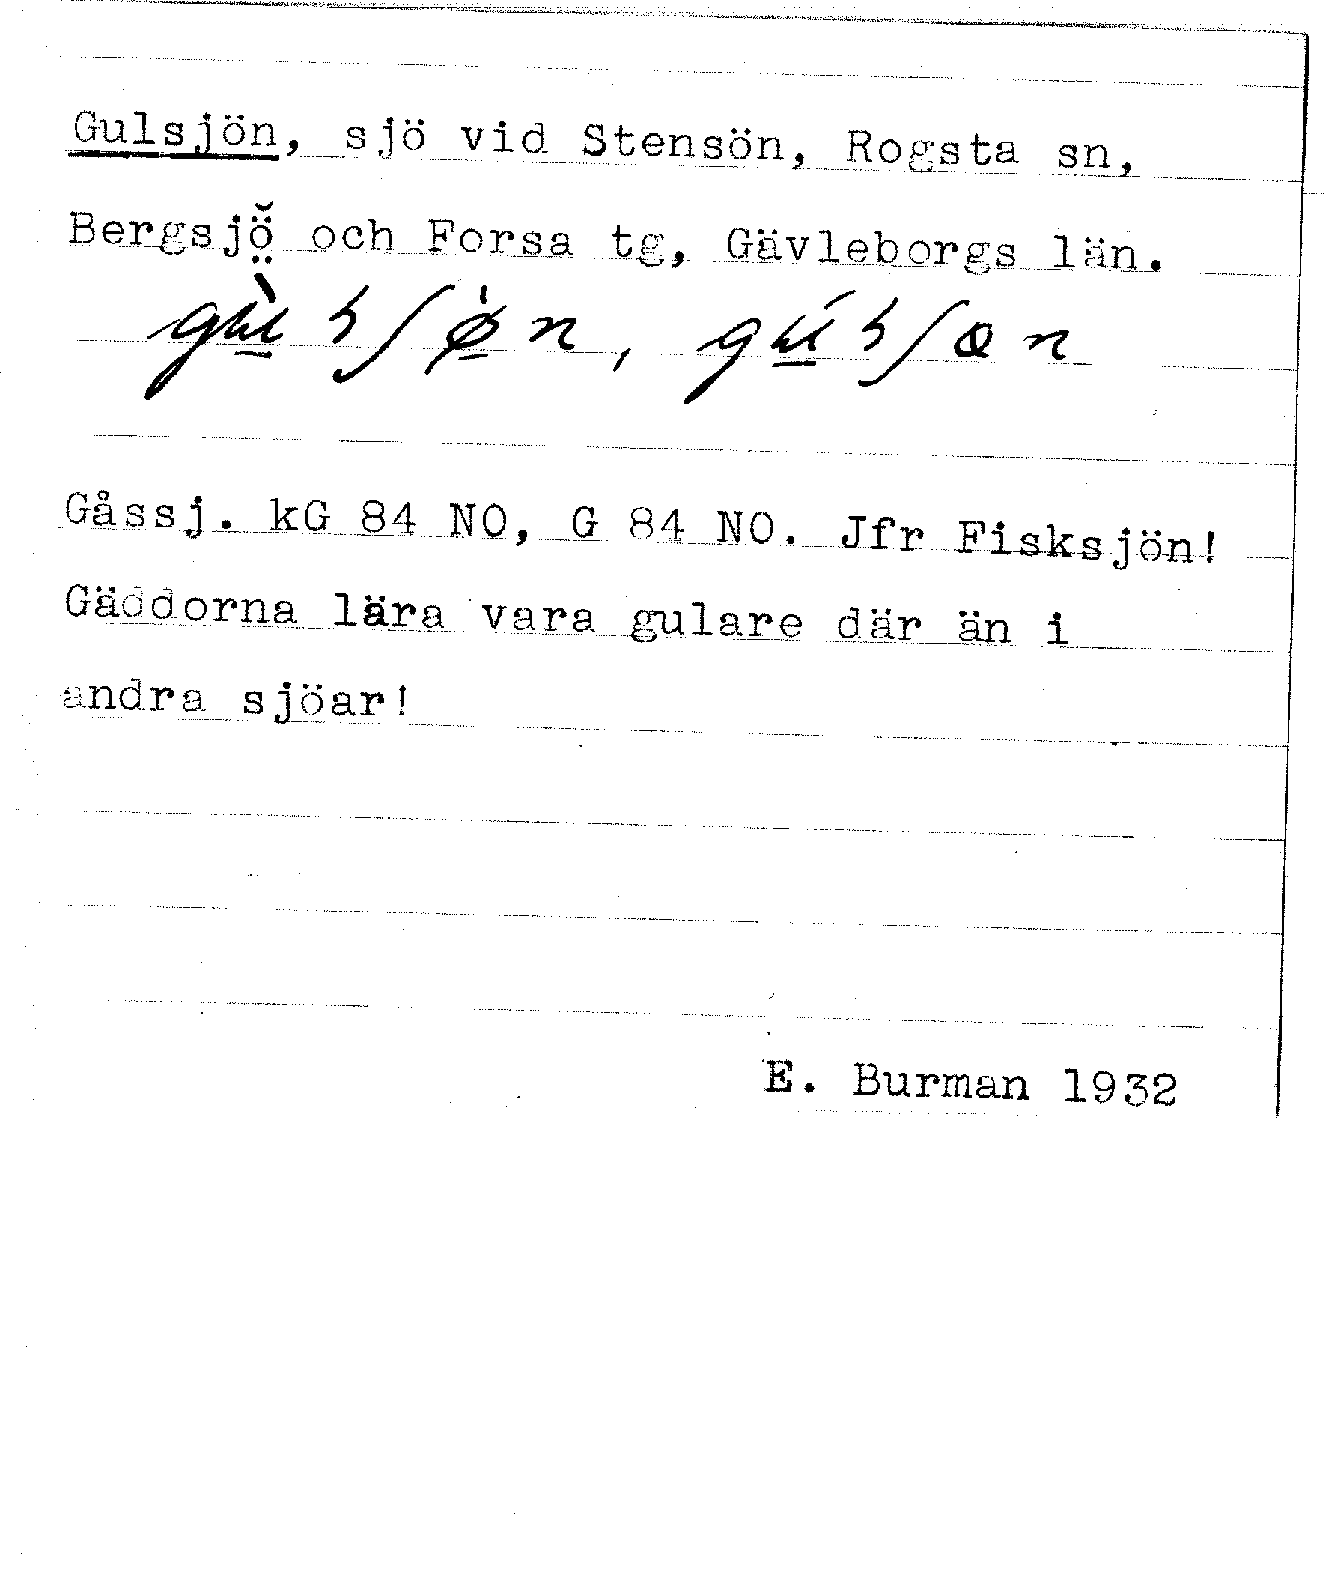 Gulsjön, sjö vid Stensön, Rogsta sn,
Bergsjö och Forsa tg, Gävleborgs län.
Gåssj. kG 84 NO, G 84 NO. Jfr Fisksjön!
Gäddorna lära vara gulare där än i
andra sjöar!
E. Burman 1932